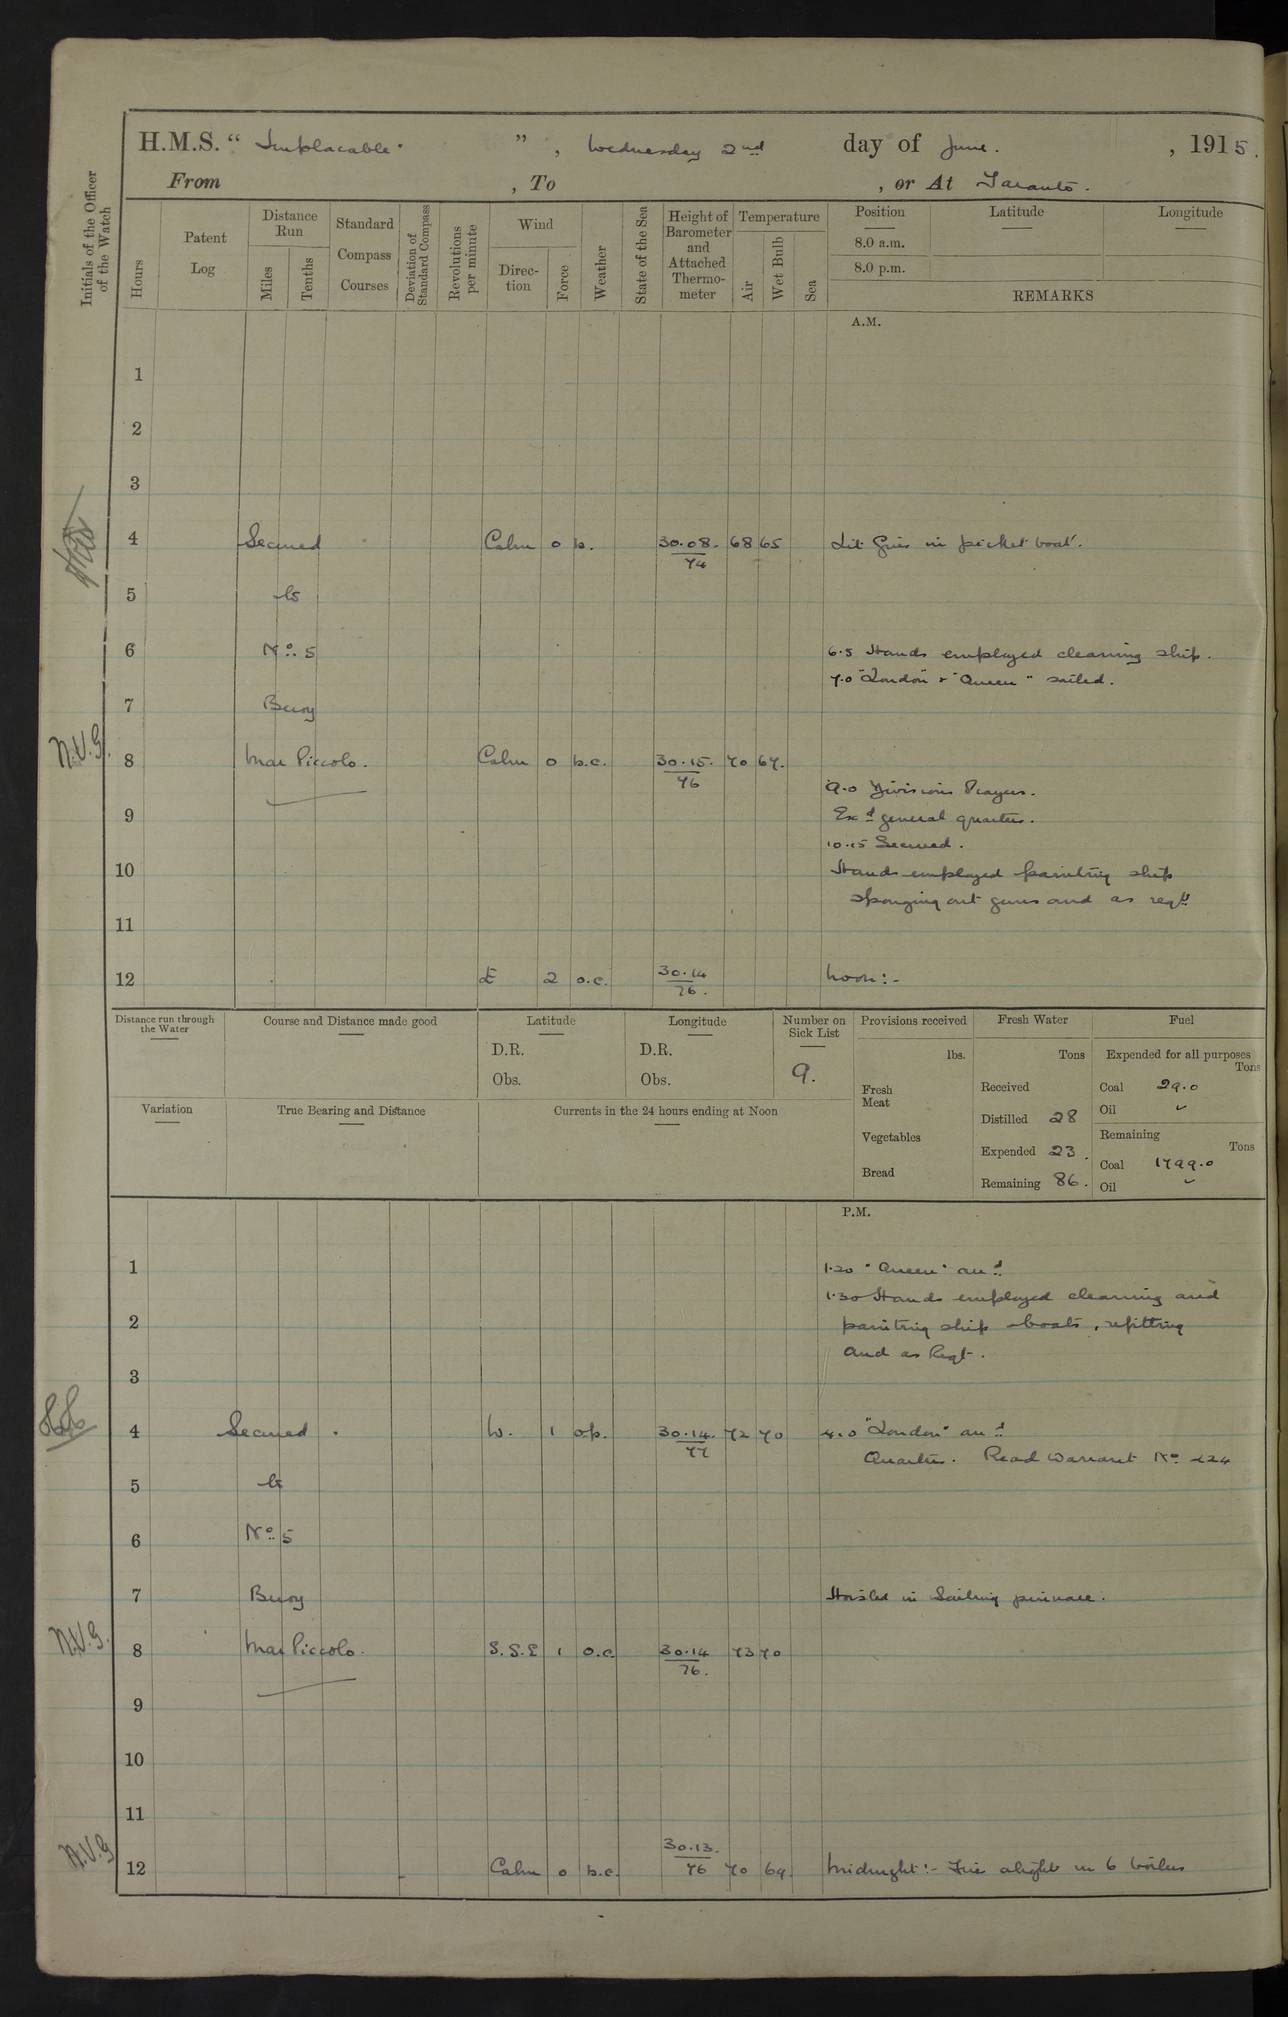 H.M.S. “ Implacable. ” , Wednesday 2nd day of June. , 1915.
From , To , or At Taranto.
Initials of the Officer of the Watch
Hours
Patent Log
Distance Run
Miles
Tenths
Standard Compass Courses
Deviation of Standard Compass
Revolutions per minute
Wind
Direc-tion
Force
Weather
State of the Sea
Height of Barometer and Attached Thermo-meter
Temperature
Air
Wet Bulb
Sea
Position Latitude Longitude
8.0 a.m.
8.0 p.m.
REMARKS
A.M.
1
2
3
4 Secured Calm 0 b. 30.08. 68 65 Lit fires in picket boat.
74
5 to
6 No. 5 6.5 Hands employed cleaning ship.
7.0 "London" & "Queen" sailed.
7 Buoy
N.V.G. 8 Mar Piccolo. Calm 0 b.c. 30.15. 70 67.
76
9.0 Divisions Prayers.
9 Exd general quarters.
10.15 Secured.
10 Hands employed painting ship
sponging out guns and as reqd.
11
12 E 2 o.c. 30.14 Noon:-
76.
Distance run through the Water
Course and Distance made good
Latitude
D.R.
Obs.
Longitude
D.R.
Obs.
Number on Sick List
9.
Provisions received
lbs.
Fresh Meat
Vegetables
Bread
Fresh Water
Tons
Received
Distilled 28
Expended 23.
Remaining 86.
Fuel
Expended for all purposes
Tons
Coal 29.0
Oil ✓
Remaining
Tons
Coal 1799.0
Oil ✓
Variation
True Bearing and Distance
Currents in the 24 hours ending at Noon
P.M.
1 1.20 "Queen" arrd.
1.30 Hands employed cleaning and
2 painting ship & boats, refitting
and as Reqd.
3
4 Secured. W. 1 o.p. 30.14. 72 70 4.0 "London" arrd.
77
Quarters. Read Warrant No. 224
5 to
6 No. 5
7 Buoy Hoisted in Sailing pinnace.
N.V.G. 8 Mar Piccolo. S.S.E 1 o.c. 30.14 73 70
76.
9
10
11
30.13.
N.V.G 12 Calm 0 b.c. 76 70 69. Midnight:- Fires alight in 6 boilers